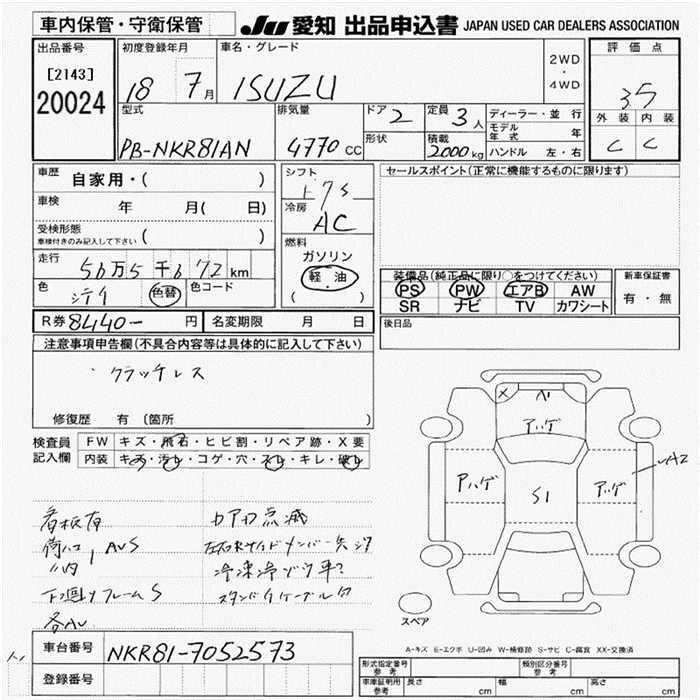 車内保管・守衛保管
JU 愛知 出品申込書 JAPAN USED CAR DEALERS ASSOCIATION
出品番号
[2143]
20024
初度登録年月
18 7月
車名・グレード
ISUZU
2WD
・
4WD
評価点
35
外装 内装
C C
型式
PB-NKR81AN
排気量
4770 CC
ドア 2
形状
定員 3人
積載 2000kg
ディーラー・並行
モデル年式 年
ハンドル 左・右
車歴 自家用・( )
車検 年 月( 日)
受検形態
車検付きのみ記入して下さい ( )
走行 56万5千672km
色
色替
色コード
シフト
F7S
冷房
AC
燃料
ガソリン
軽油
( )
セールスポイント(正常に機能するものに限ります)
装備品(純正品に限り○をつけてください)
PS PW エアB AW
SR ナビ TV カワシート
新車保証書
有・無
R券 8440- 円
名変期限 月 日
後日品
注意事項申告欄(不具合内容等は具体的に記入して下さい)
・クラッチレス
修復歴 有(箇所 )
検査員記入欄
FW キズ・飛石・ヒビ割・リペア跡・X要
内装 キズ・汚レ・コゲ・穴・スレ・キレ・破レ
看板有
下廻りフレームS
X
A1
アハゲ
アハゲ
アハゲ
S1
A2
スペア
A-キズ E-エクボ U-凹み W-補修跡 S-サビ C-腐食 XX-交換済
車台番号 NKR81-7052573
登録番号
形式指定番号 参考
類別区分番号 参考
車庫証明用 参考 長さ cm 幅 cm 高さ cm